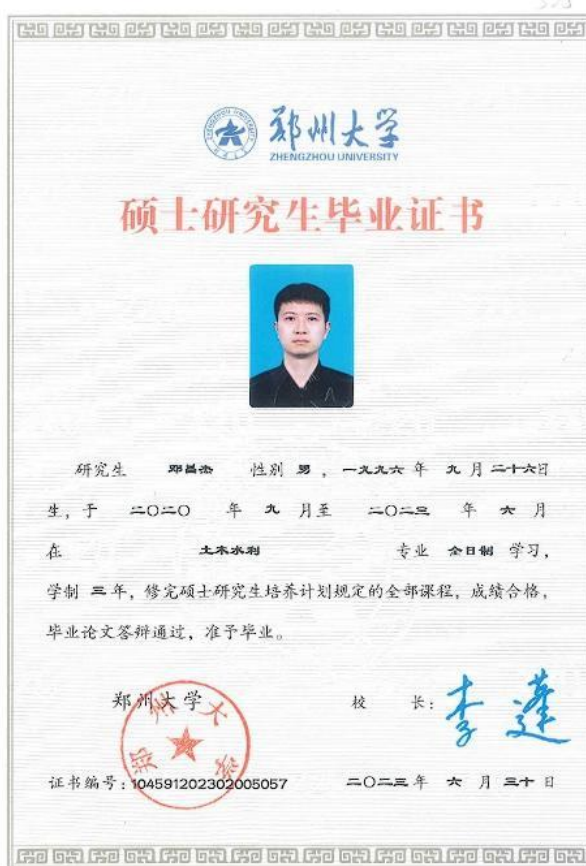 郑州大学
ZHENGZHOU UNIVERSITY
硕士研究生毕业证书
研究生 邓昌杰 性别 男，一九九六年 九月二十六日
生，于 二〇二〇 年 九 月至 二〇二三 年 六 月
在 土木水利 专业 全日制 学习，
学制 三年，修完硕士研究生培养计划规定的全部课程，成绩合格，
毕业论文答辩通过，准予毕业。
郑州大学 校 长：李蓬
郑州大学
证书编号：104591202302005057 二〇二三年 六 月 三十 日